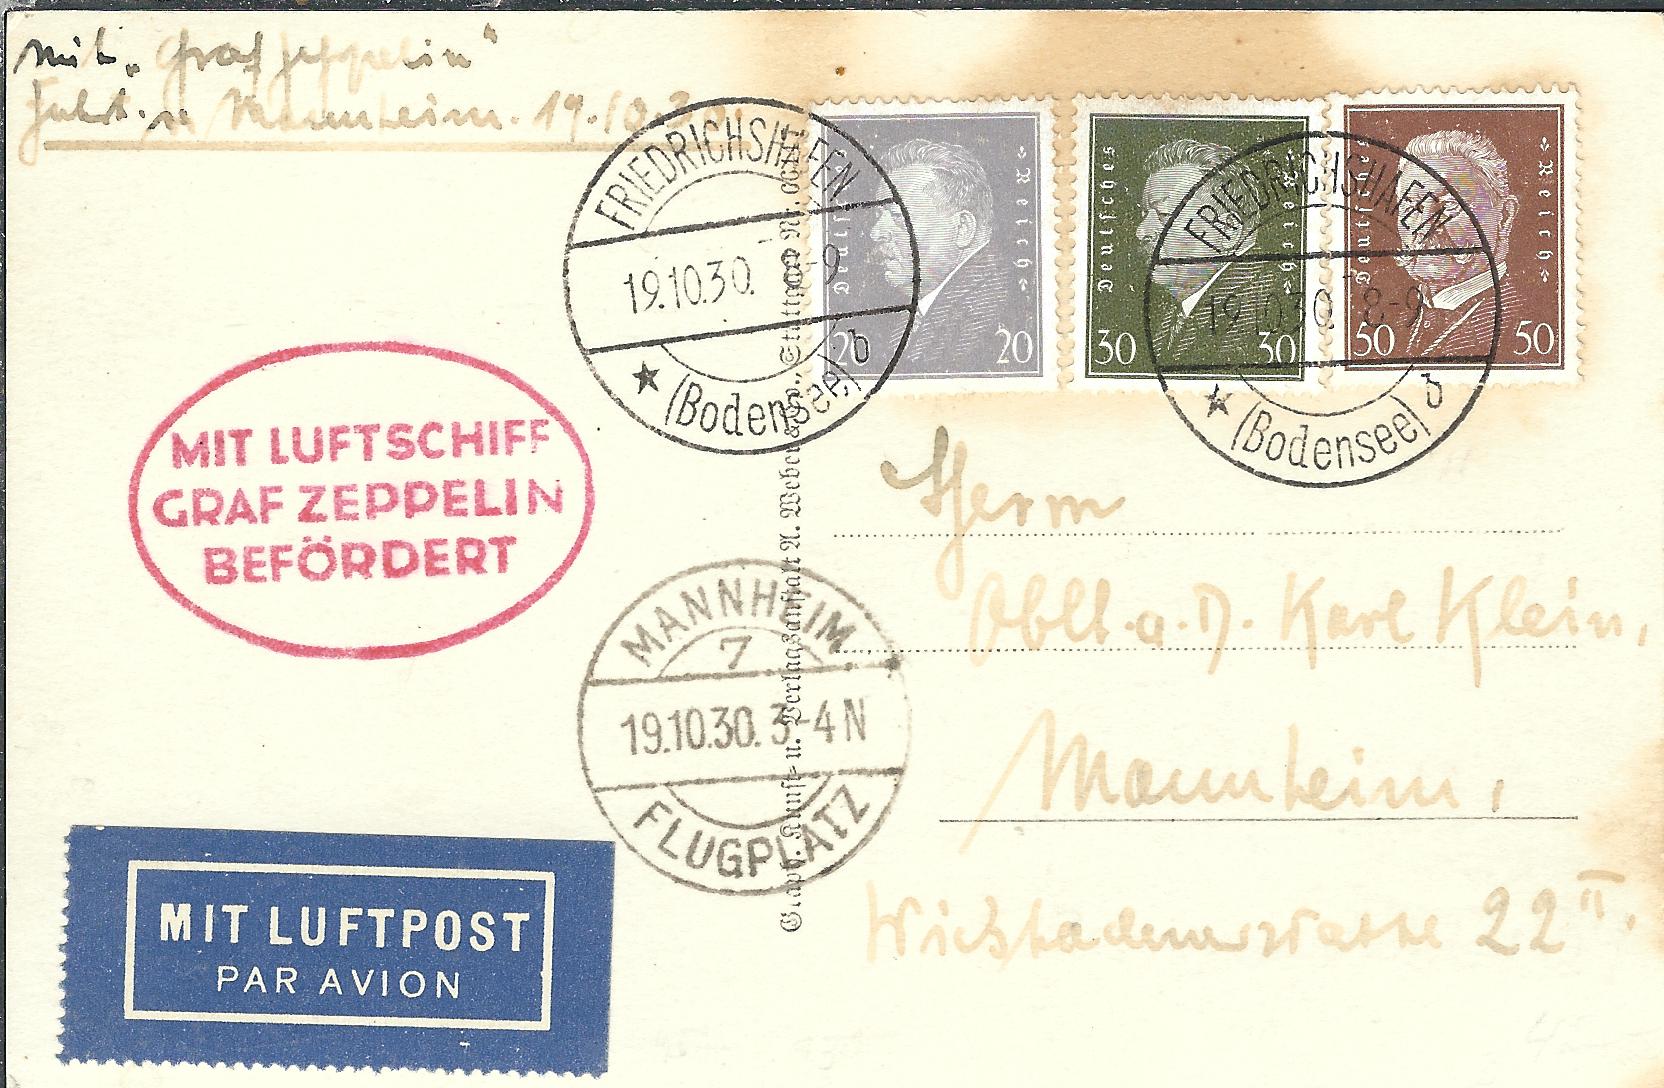 Mit „Graf Zeppelin“
Fahrt. n Mannheim. 19.10.30.
FRIEDRICHSHAFEN
19.10.30. 8-9
(Bodensee) b
Deutsches «Reich«
20 20
Deutsches Reich«
30 30
Deutsches «Reich«
50 50
FRIEDRICHSHAFEN
19.10.30. 8-9
(Bodensee)
MIT LUFTSCHIFF
GRAF ZEPPELIN
BEFÖRDERT
MANNHEIM
7
19.10.30. 3-4 N
FLUGPLATZ
Graph. Kunst- u. Verlagsanstalt A. Weber & Co., Stuttgart Nr.
Herrn
Oblt. a. D. Karl Klein,
Mannheim,
Wiesbadenerstrasse 22 II.
MIT LUFTPOST
PAR AVION